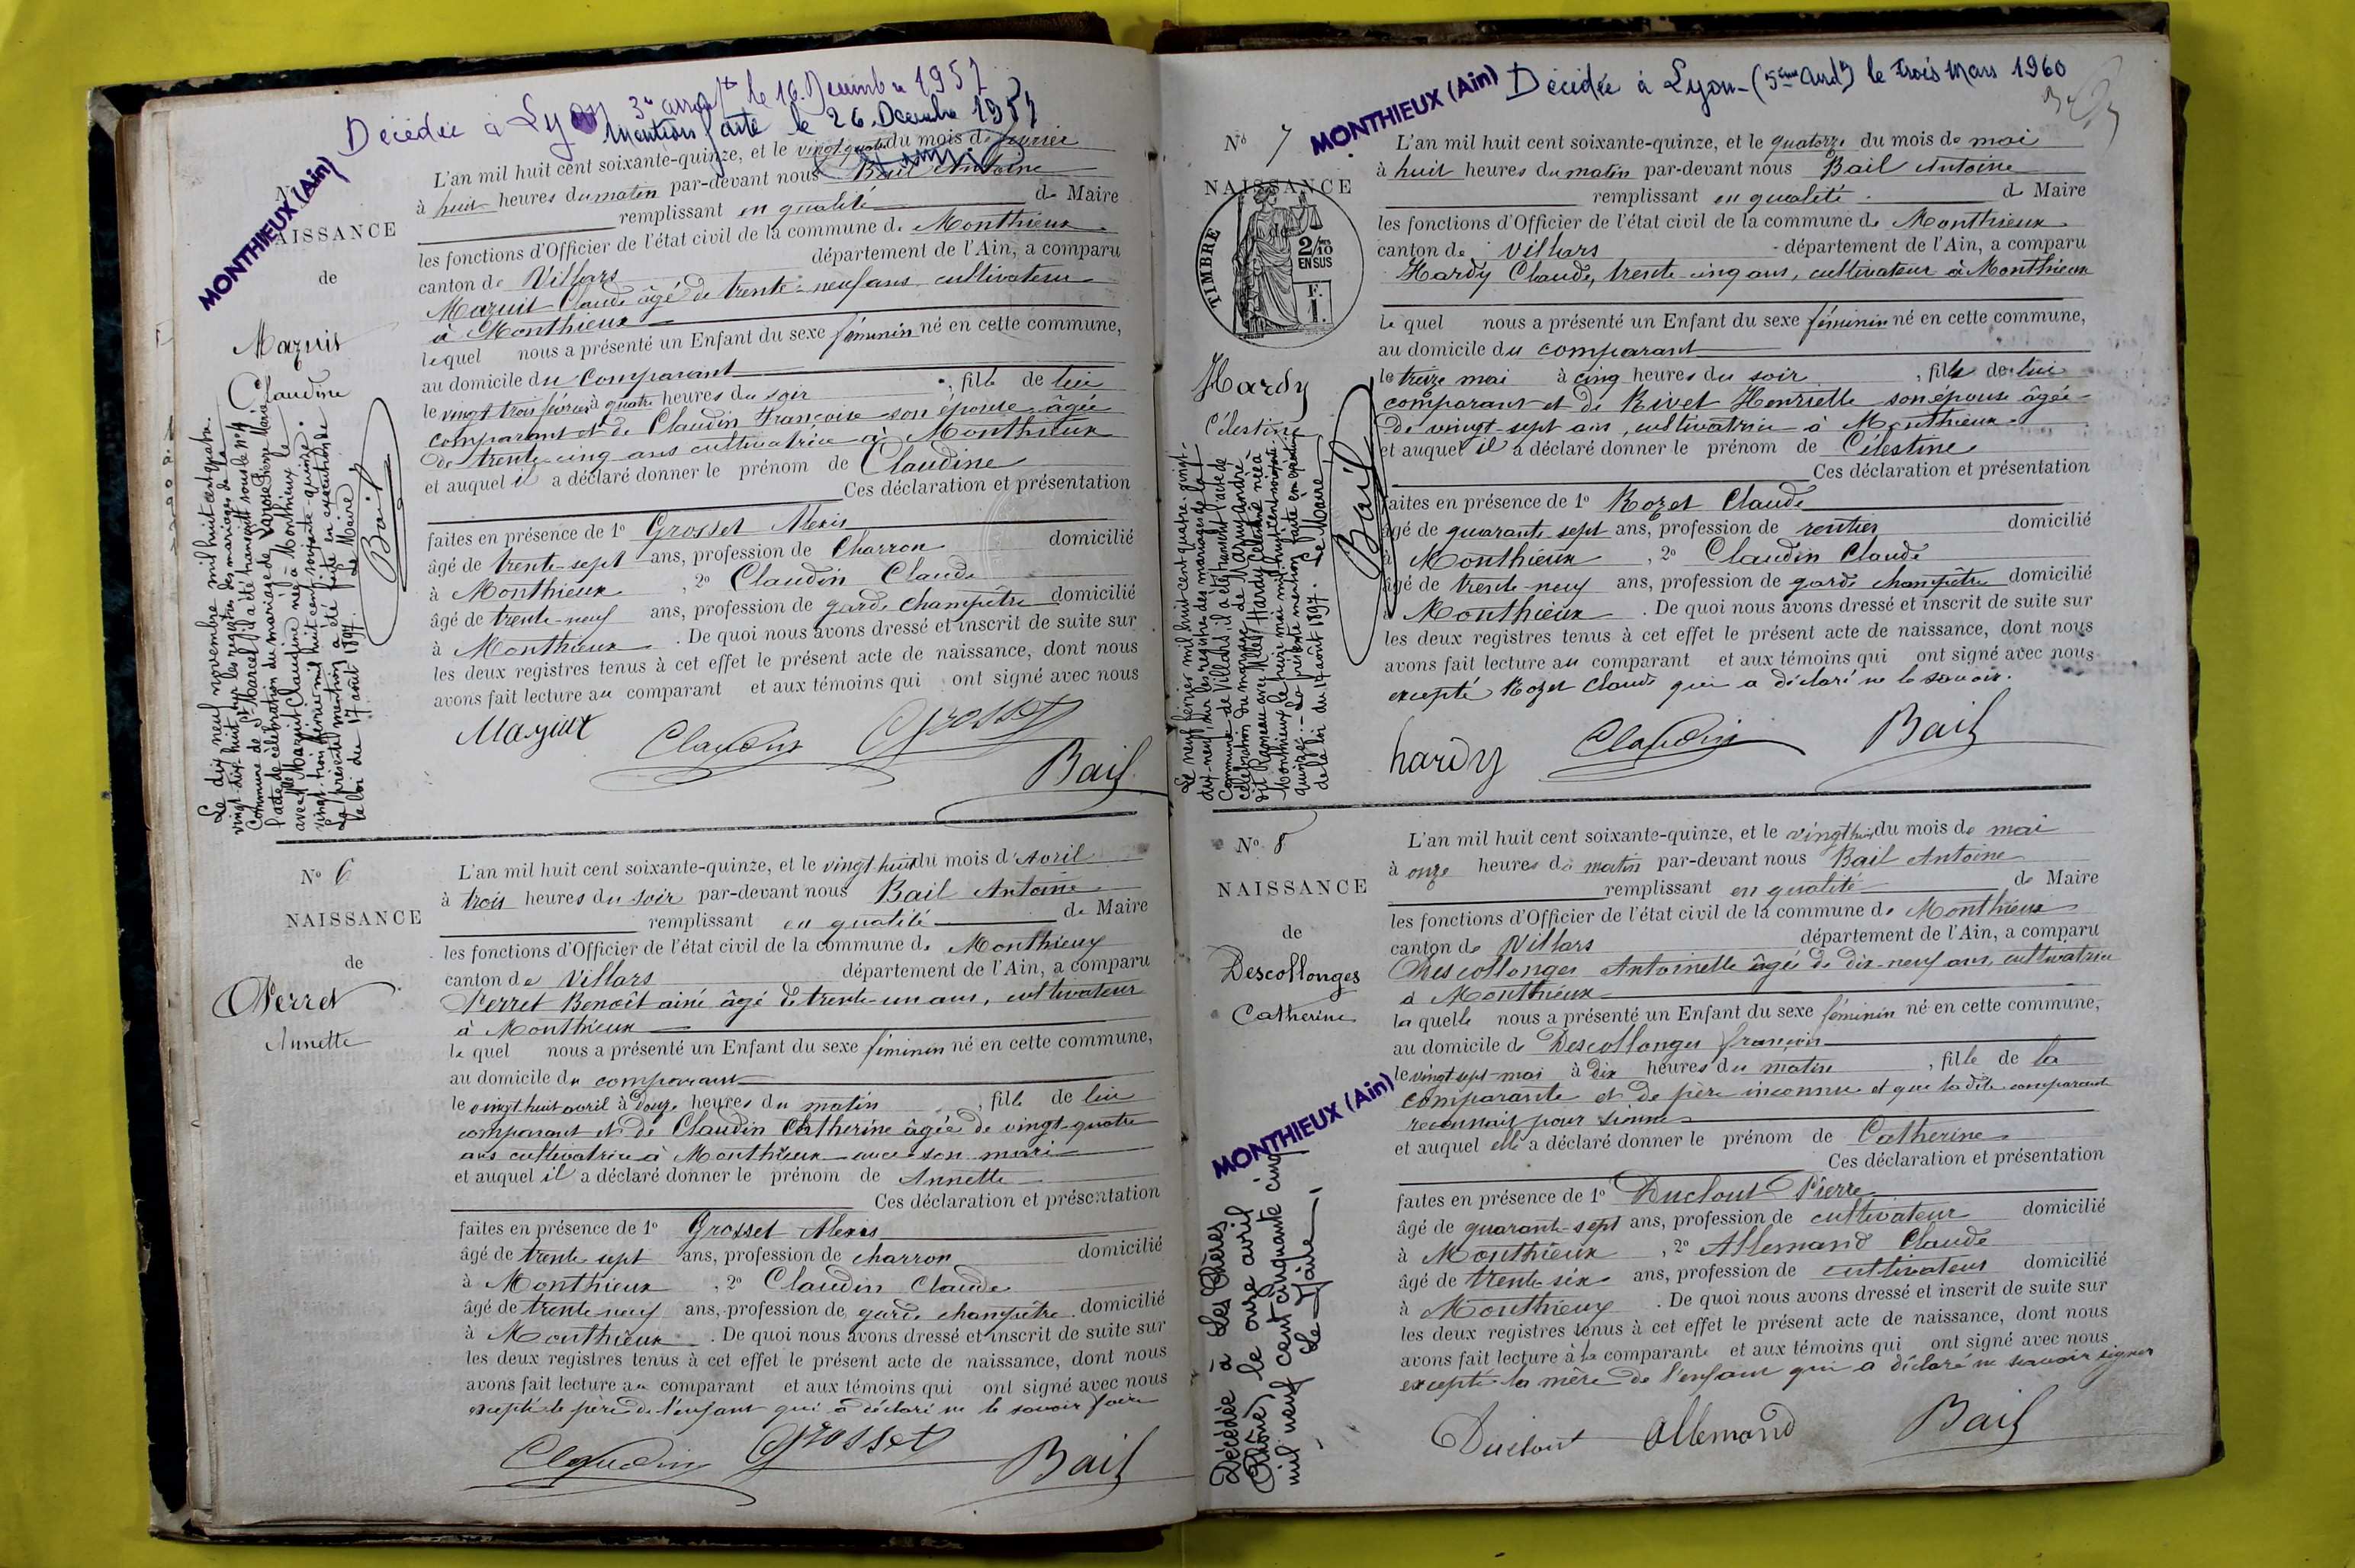 Décédée à Lyon 3e arrondt le 16 Décembre 1957
Mention faite le 26 Décembre 1957
MONTHIEUX (Ain)
NAISSANCE
de
Mazuit
Claudine
L'an mil huit cent soixante-quinze, et le vingt quatre du mois de février
à huit heures du matin par-devant nous Bail Antoine
remplissant en qualité de Maire
les fonctions d'Officier de l'état civil de la commune de Monthieux
canton de Villars département de l'Ain, a comparu
Mazuit Claude âgé de trente-neuf ans cultivateur
à Monthieux
lequel nous a présenté un Enfant du sexe féminin né en cette commune,
au domicile du comparant
le vingt trois février à quatre heures du soir, fille de lui
comparant et de Claudin Françoise son épouse âgée
de trente-cinq ans cultivatrice à Monthieux
et auquel il a déclaré donner le prénom de Claudine
Ces déclaration et présentation
faites en présence de 1o Grosset Alexis
âgé de trente-sept ans, profession de Charron domicilié
à Monthieux, 2o Claudin Claude
âgé de trente-neuf ans, profession de garde champêtre domicilié
à Monthieux. De quoi nous avons dressé et inscrit de suite sur
les deux registres tenus à cet effet le présent acte de naissance, dont nous
avons fait lecture au comparant et aux témoins qui ont signé avec nous
Mazuit Claudin Grosset
Bail
Le dix neuf novembre mil huit cent quatre
vingt-dix-huit, sur les registres des mariages de la
Commune de St Marcel, il a été transcrit sous le no 4
l'acte de célébration du mariage de Pierre Marie
avec Mazuit Claudine née à Monthieux le
vingt-trois février mil huit cent soixante-quinze.
La présente mention a été faite en exécution de
la loi du 17 août 1897. Le Maire
Bail
No 6
NAISSANCE
de
Perret
Annette
L'an mil huit cent soixante-quinze, et le vingt-huit du mois d'Avril
à trois heures du soir par-devant nous Bail Antoine
remplissant en qualité de Maire
les fonctions d'Officier de l'état civil de la commune de Monthieux
canton de Villars département de l'Ain, a comparu
Perret Benoît ainé âgé de trente-un ans, cultivateur
à Monthieux
le quel nous a présenté un Enfant du sexe féminin né en cette commune,
au domicile du comparant
le vingt huit avril à douze heures du matin, fille de lui
comparant et de Claudin Catherine âgée de vingt-quatre
ans cultivatrice à Monthieux avec son mari
et auquel il a déclaré donner le prénom de Annette
Ces déclaration et présentation
faites en présence de 1o Grosset Alexis
âgé de trente sept ans, profession de charron domicilié
à Monthieux, 2o Claudin Claude
âgé de trente neuf ans, profession de garde champêtre domicilié
à Monthieux. De quoi nous avons dressé et inscrit de suite sur
les deux registres tenus à cet effet le présent acte de naissance, dont nous
avons fait lecture au comparant et aux témoins qui ont signé avec nous
excepté le père de l'enfant qui a déclaré ne le savoir faire
Claudin Grosset Bail
MONTHIEUX (Ain) Décédée à Lyon (5ème Arrdt) le trois Mars 1960
No 7
NAISSANCE
TIMBRE
2/10 EN SUS
F. 1.
Hardy
Célestine
L'an mil huit cent soixante-quinze, et le quatorze du mois de mai
à huit heures du matin par-devant nous Bail Antoine
remplissant en qualité de Maire
les fonctions d'Officier de l'état civil de la commune de Monthieux
canton de Villars département de l'Ain, a comparu
Hardy Claude, trente-cinq ans, cultivateur à Monthieux
le quel nous a présenté un Enfant du sexe féminin né en cette commune,
au domicile du comparant
le treize mai à cinq heures du soir, fille de lui
comparant et de Rivet Henriette son épouse âgée
de vingt-sept ans, cultivatrice à Monthieux
et auquel il a déclaré donner le prénom de Célestine
Ces déclaration et présentation
faites en présence de 1o Rozet Claude
âgé de quarante sept ans, profession de rentier domicilié
à Monthieux, 2o Claudin Claude
âgé de trente-neuf ans, profession de garde champêtre domicilié
à Monthieux. De quoi nous avons dressé et inscrit de suite sur
les deux registres tenus à cet effet le présent acte de naissance, dont nous
avons fait lecture au comparant et aux témoins qui ont signé avec nous
excepté Rozet Claude qui a déclaré ne le savoir.
hardy Claudin Bail
Le neuf février mil huit cent quatre-vingt-
dix-neuf sur les registres des mariages de la
Commune de Villars il a été transcrit l'acte de
célébration du mariage de André
dit avec Melle Hardy Célestine née à
Monthieux le treize mai mil huit cent soixante
quinze. La présente mention faite en exécution
de la loi du 17 août 1897. Le Maire
Bail
No 8
NAISSANCE
de
Descollonges
Catherine
L'an mil huit cent soixante-quinze, et le vingt huit du mois de mai
à onze heures du matin par-devant nous Bail Antoine
remplissant en qualité de Maire
les fonctions d'Officier de l'état civil de la commune de Monthieux
canton de Villars département de l'Ain, a comparu
Descollonges Antoinette âgée de dix-neuf ans, cultivatrice
à Monthieux
la quelle nous a présenté un Enfant du sexe féminin né en cette commune,
au domicile de Descollonges françois
le vingt sept mai à dix heures du matin, fille de la
comparante et de père inconnu et que la dite comparante
reconnait pour sienne
et auquel elle a déclaré donner le prénom de Catherine
Ces déclaration et présentation
faites en présence de 1o Duclout Pierre
âgé de quarante-sept ans, profession de cultivateur domicilié
à Monthieux, 2o Allemand Claude
âgé de trente-six ans, profession de cultivateur domicilié
à Monthieux. De quoi nous avons dressé et inscrit de suite sur
les deux registres tenus à cet effet le présent acte de naissance, dont nous
avons fait lecture à la comparante et aux témoins qui ont signé avec nous
excepté la mère de l'enfant qui a déclaré ne savoir signer
Duclout Allemand Bail
MONTHIEUX (Ain)
Décédée à Les Chères
(Rhône) le onze avril
mil neuf cent cinquante cinq
Le Maire